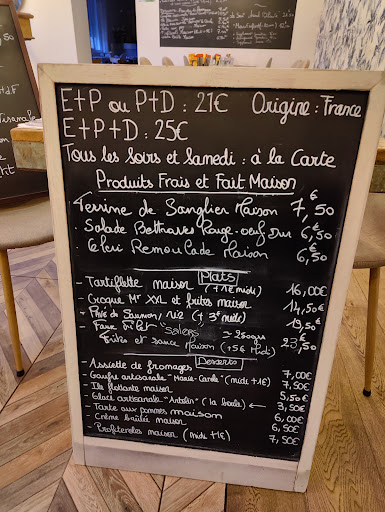 E+P ou P+D : 21€ Origine : France
E+P+D : 25€
Tous les Soirs et Samedi : à la Carte
Produits Frais et Fait Maison
Terrine de Sanglier Maison 7,50€
. Salade Betteraves Rouge-oeuf Dur 6,50€
. Céleri Remoulade Maison 6,50€
Plats
- Tartiflette maison (+1€ midi) 16,00€
- Croque Mr XXL et frites maison 14,50€
- Pavé de Saumon/riz (+3€ midi) 19,50€
- Faux Filet "Salers" ~ 250grs
Frites et sauce Maison (+5€ Midi) 23,50€
Desserts
- Assiette de fromages 7,00€
- Gaufre artisanale "Marie-Carole" (midi +1€) 7,50€
- Ile flottante maison 5,50€
- Glace artisanale "Antolin" (la boule) ← 3,50€
- Tarte aux pommes maison 6,00€
- Crème brûlée maison 6,00€
- Profiteroles maison (midi +1€) 7,50€